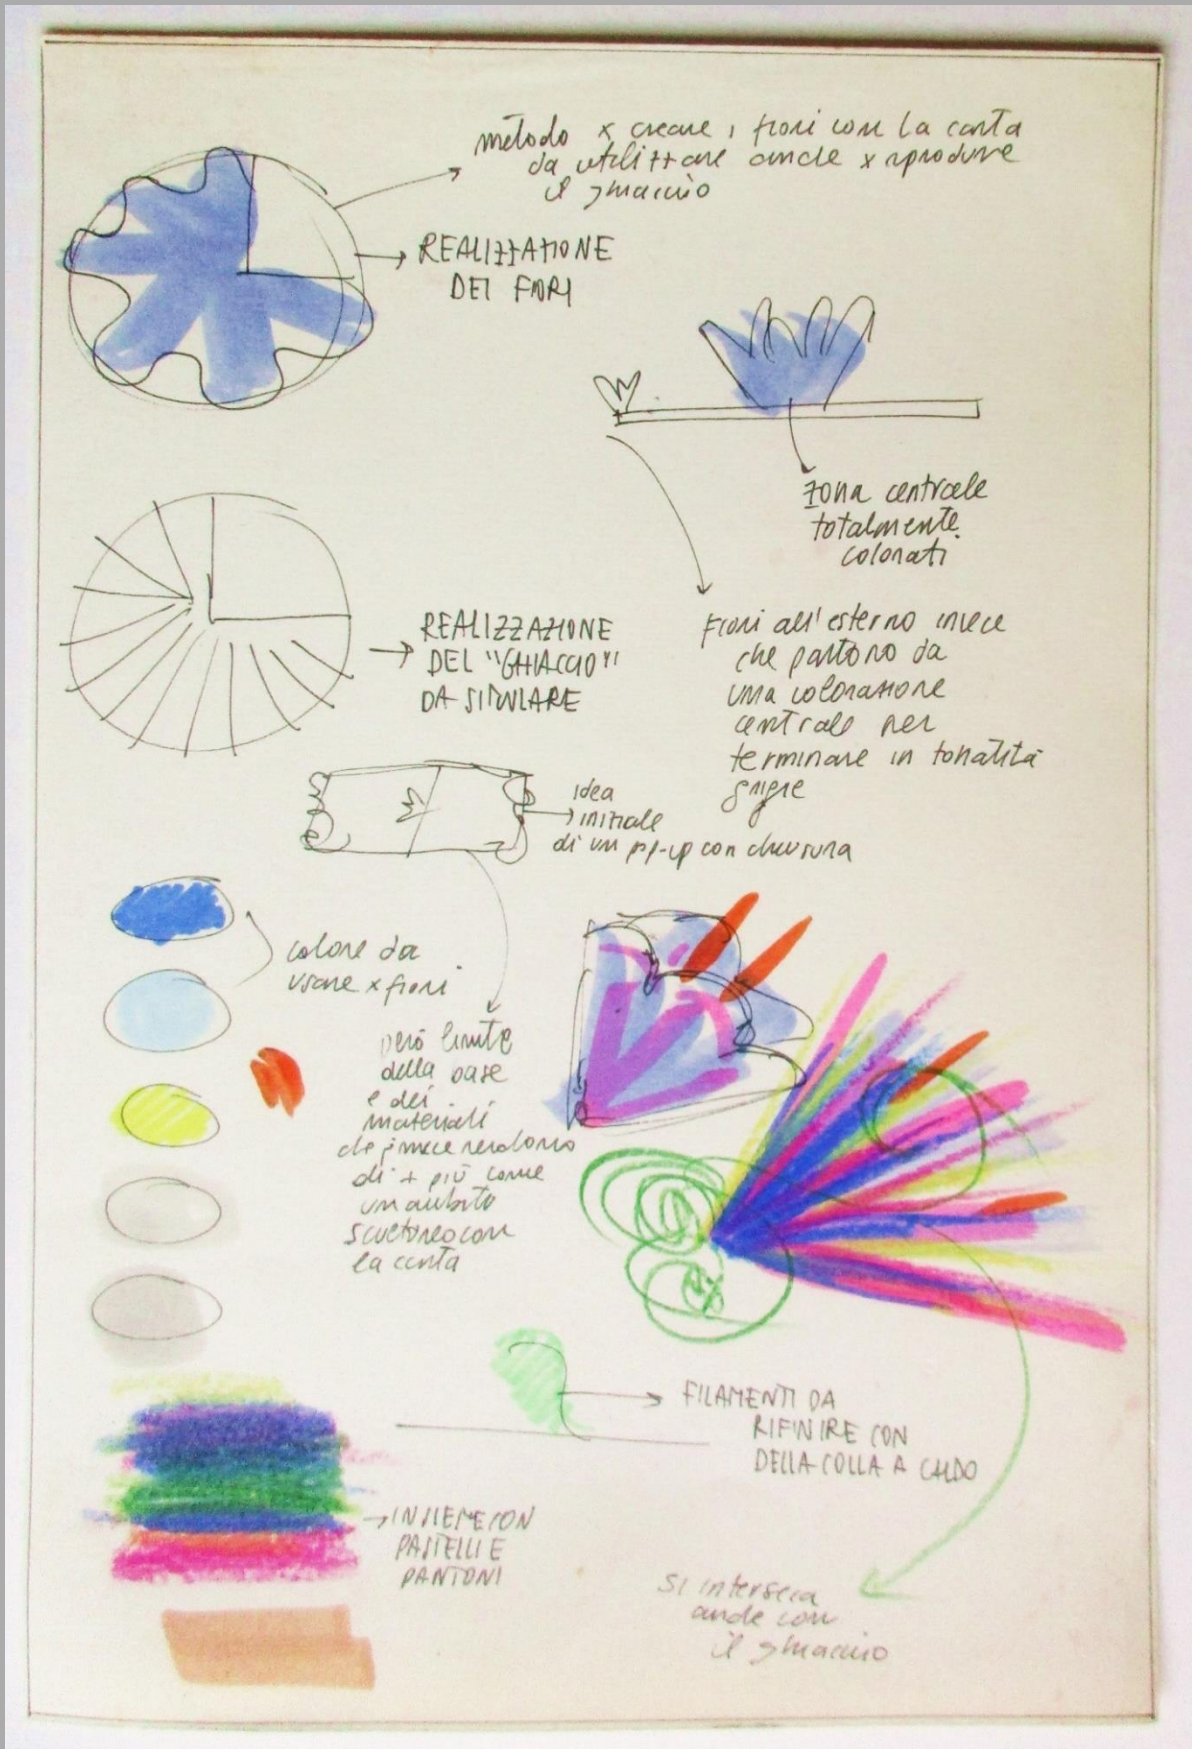 metodo x creare i fiori con la carta
da utilizzare anche x riprodurre
il ghiaccio
REALIZZAZIONE
DEI FIORI
zona centrale
totalmente
colorati
fiori all'esterno invece
che partono da
una colorazione
centrale per
terminare in tonalità
grigie
REALIZZAZIONE
DEL "GHIACCIO"
DA SIMULARE
idea
iniziale
di un pop-up con chiusura
colore da
usare x fiori
però limite
della base
e dei
materiali
che invece rendono
di + più come
un ambito
scultoreo con
la carta
FILAMENTI DA
RIFINIRE CON
DELLA COLLA A CALDO
INSIEME CON
PASTELLI E
PANTONI
si interseca
anche con
il ghiaccio